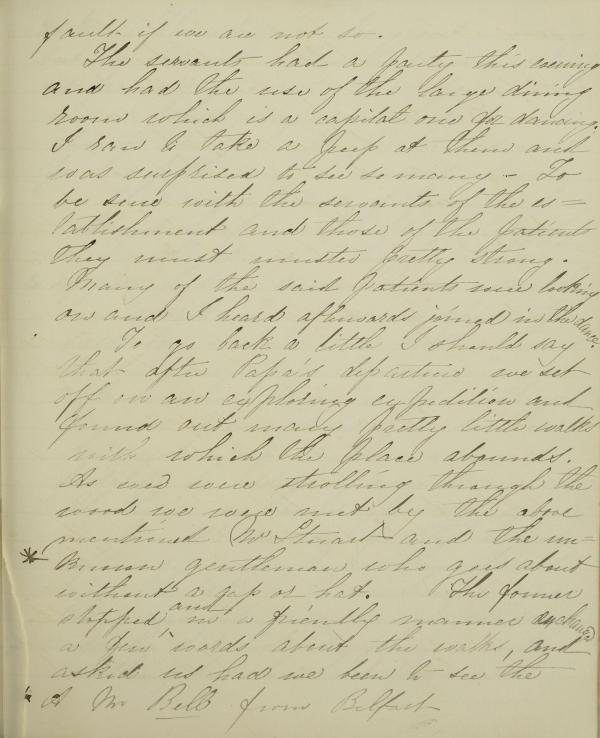 fault if we are not so.
The servants had a party this evening
and had the use of the large dining
room which is a capital one for dancing.
I ran to take a peep at them and
was surprised to see so many - To
be sure with the servants of the es=
tablishment and those of the patients
they must muster pretty strong.
Many of the said patients were looking
on and I heard afterwards joined in the dance.
To go back a little I should say
that after Papa's departure we set
off on an exploring expedition and
found out many pretty little walks
with which the place abounds.
As we were strolling through the
wood we were met by the above
mentioned Mr Stuart and the un=
* known gentleman who goes about
without a cap or hat. The former
stopped, and in a friendly manner exchanged
a few words about the walks, and
asked us had we been to see the
* A Mr Bell from Belfast